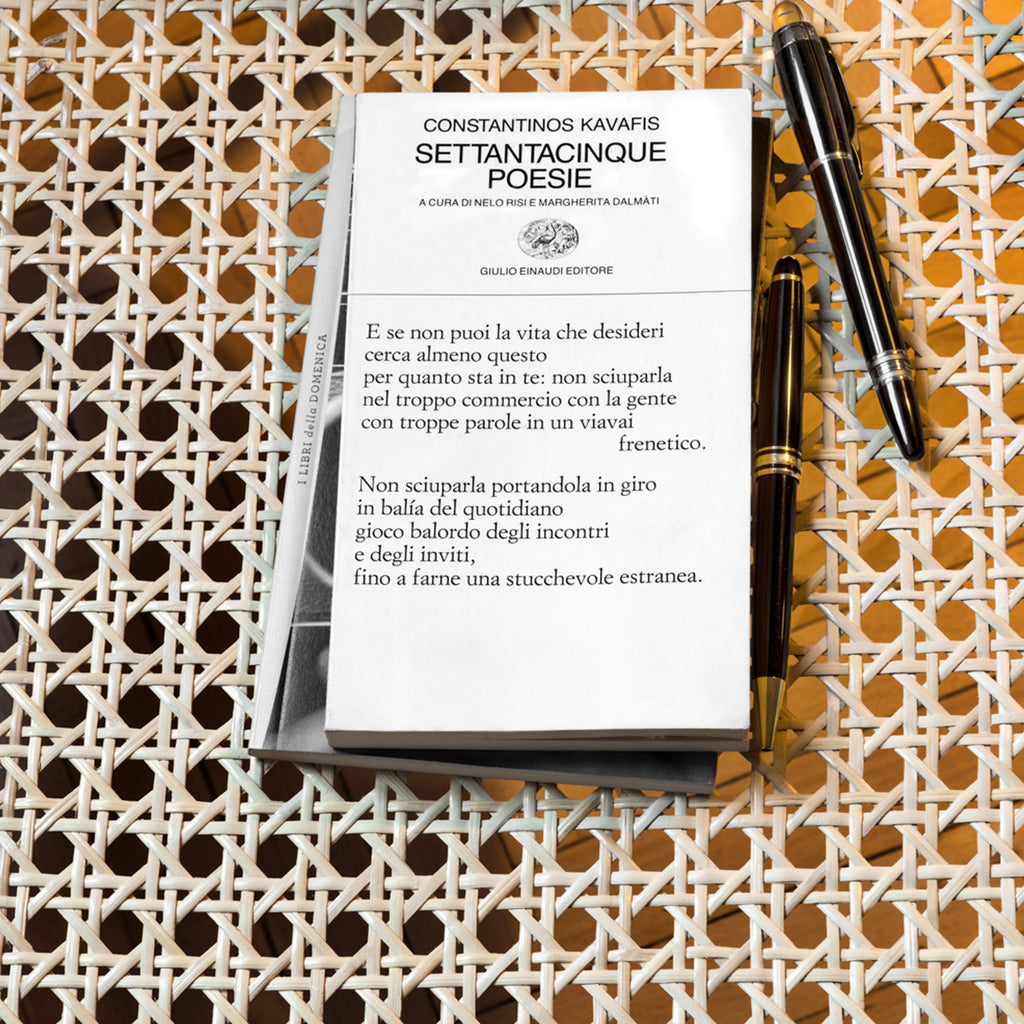 CONSTANTINOS KAVAFIS
SETTANTACINQUE
POESIE
A CURA DI NELO RISI E MARGHERITA DALMÀTI
GIULIO EINAUDI EDITORE
E se non puoi la vita che desideri
cerca almeno questo
per quanto sta in te: non sciuparla
nel troppo commercio con la gente
con troppe parole in un viavai
frenetico.
Non sciuparla portandola in giro
in balía del quotidiano
gioco balordo degli incontri
e degli inviti,
fino a farne una stucchevole estranea.
I LIBRI della DOMENICA